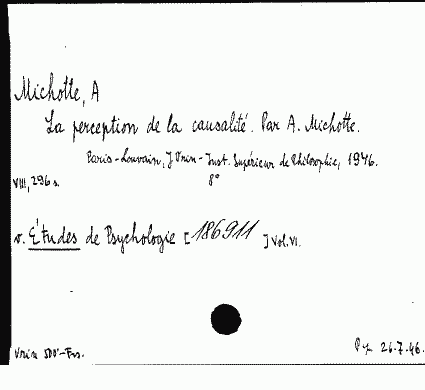 Michotte, A
La perception de la causalité. Par A. Michotte.
Paris - Louvain, J. Vrin - Inst. Supérieur de Philosophie, 1946.
VIII, 296 s. 8°
v. Études de Psychologie [186911] Vol. VI.
Vrin 500'- Frs. 26.7.46.